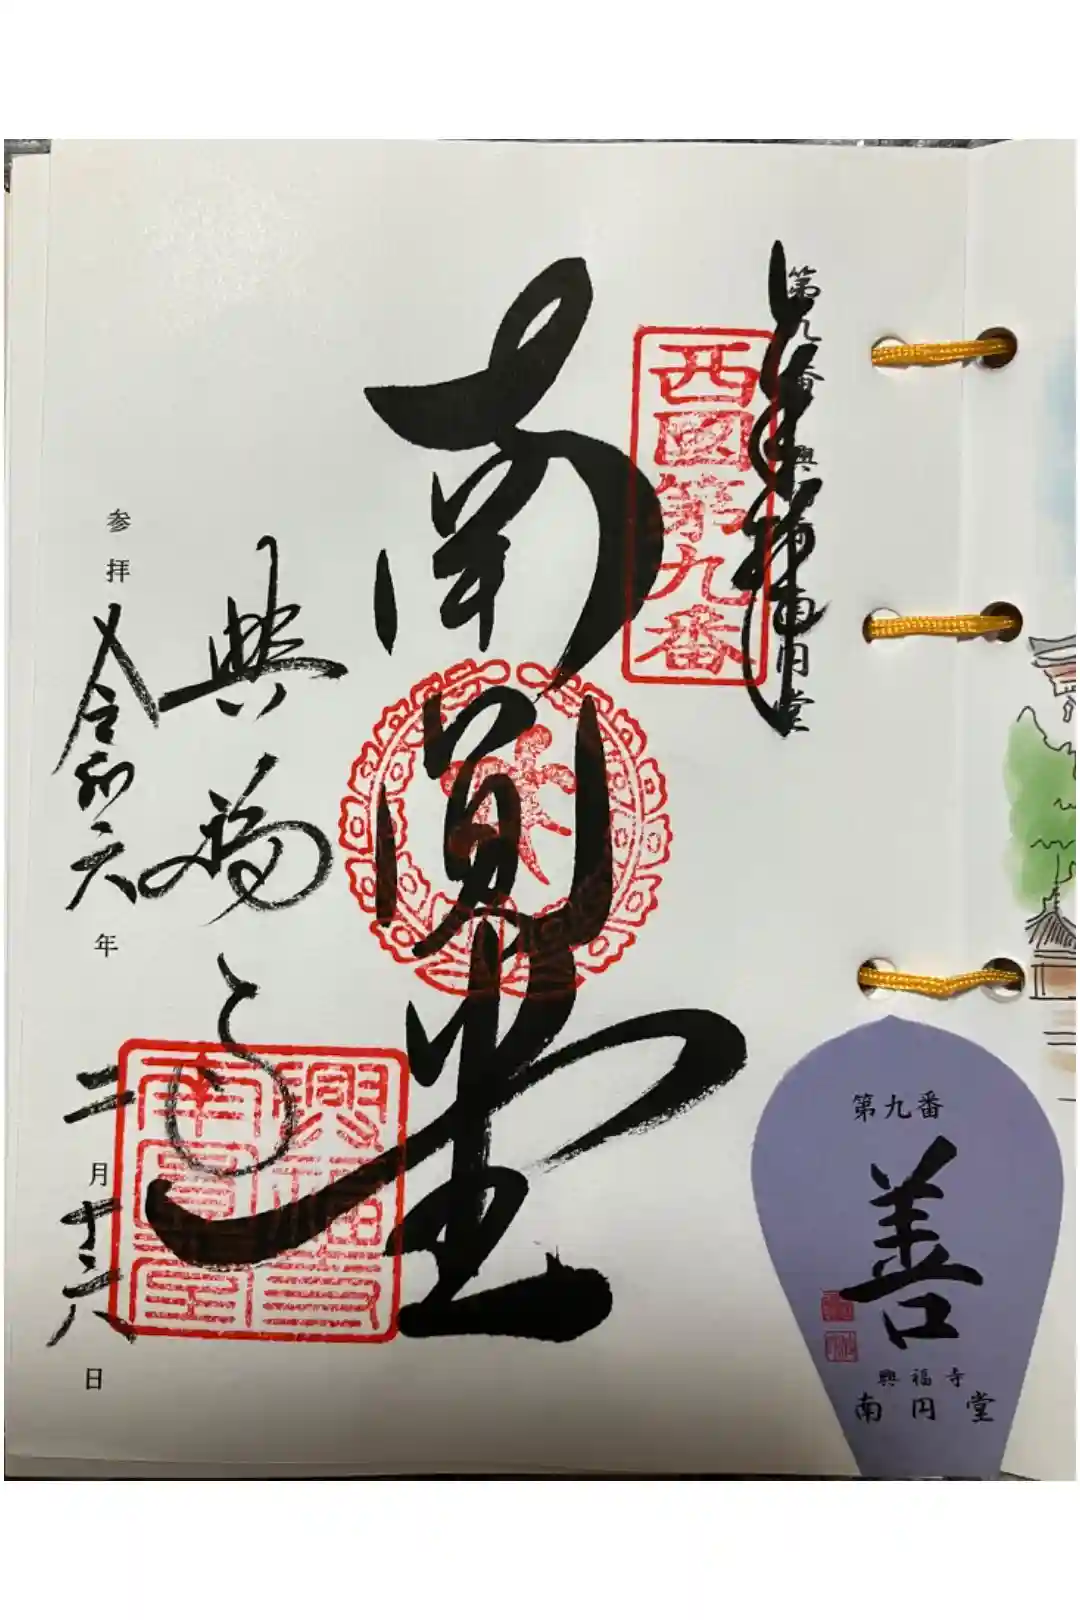 第九番 興福寺 南円堂
奉拝
西國第九番
南圓堂
興福寺
興福寺
南圓堂
参拝 令和六年 二月十六日
第九番
善
興福寺
南円堂